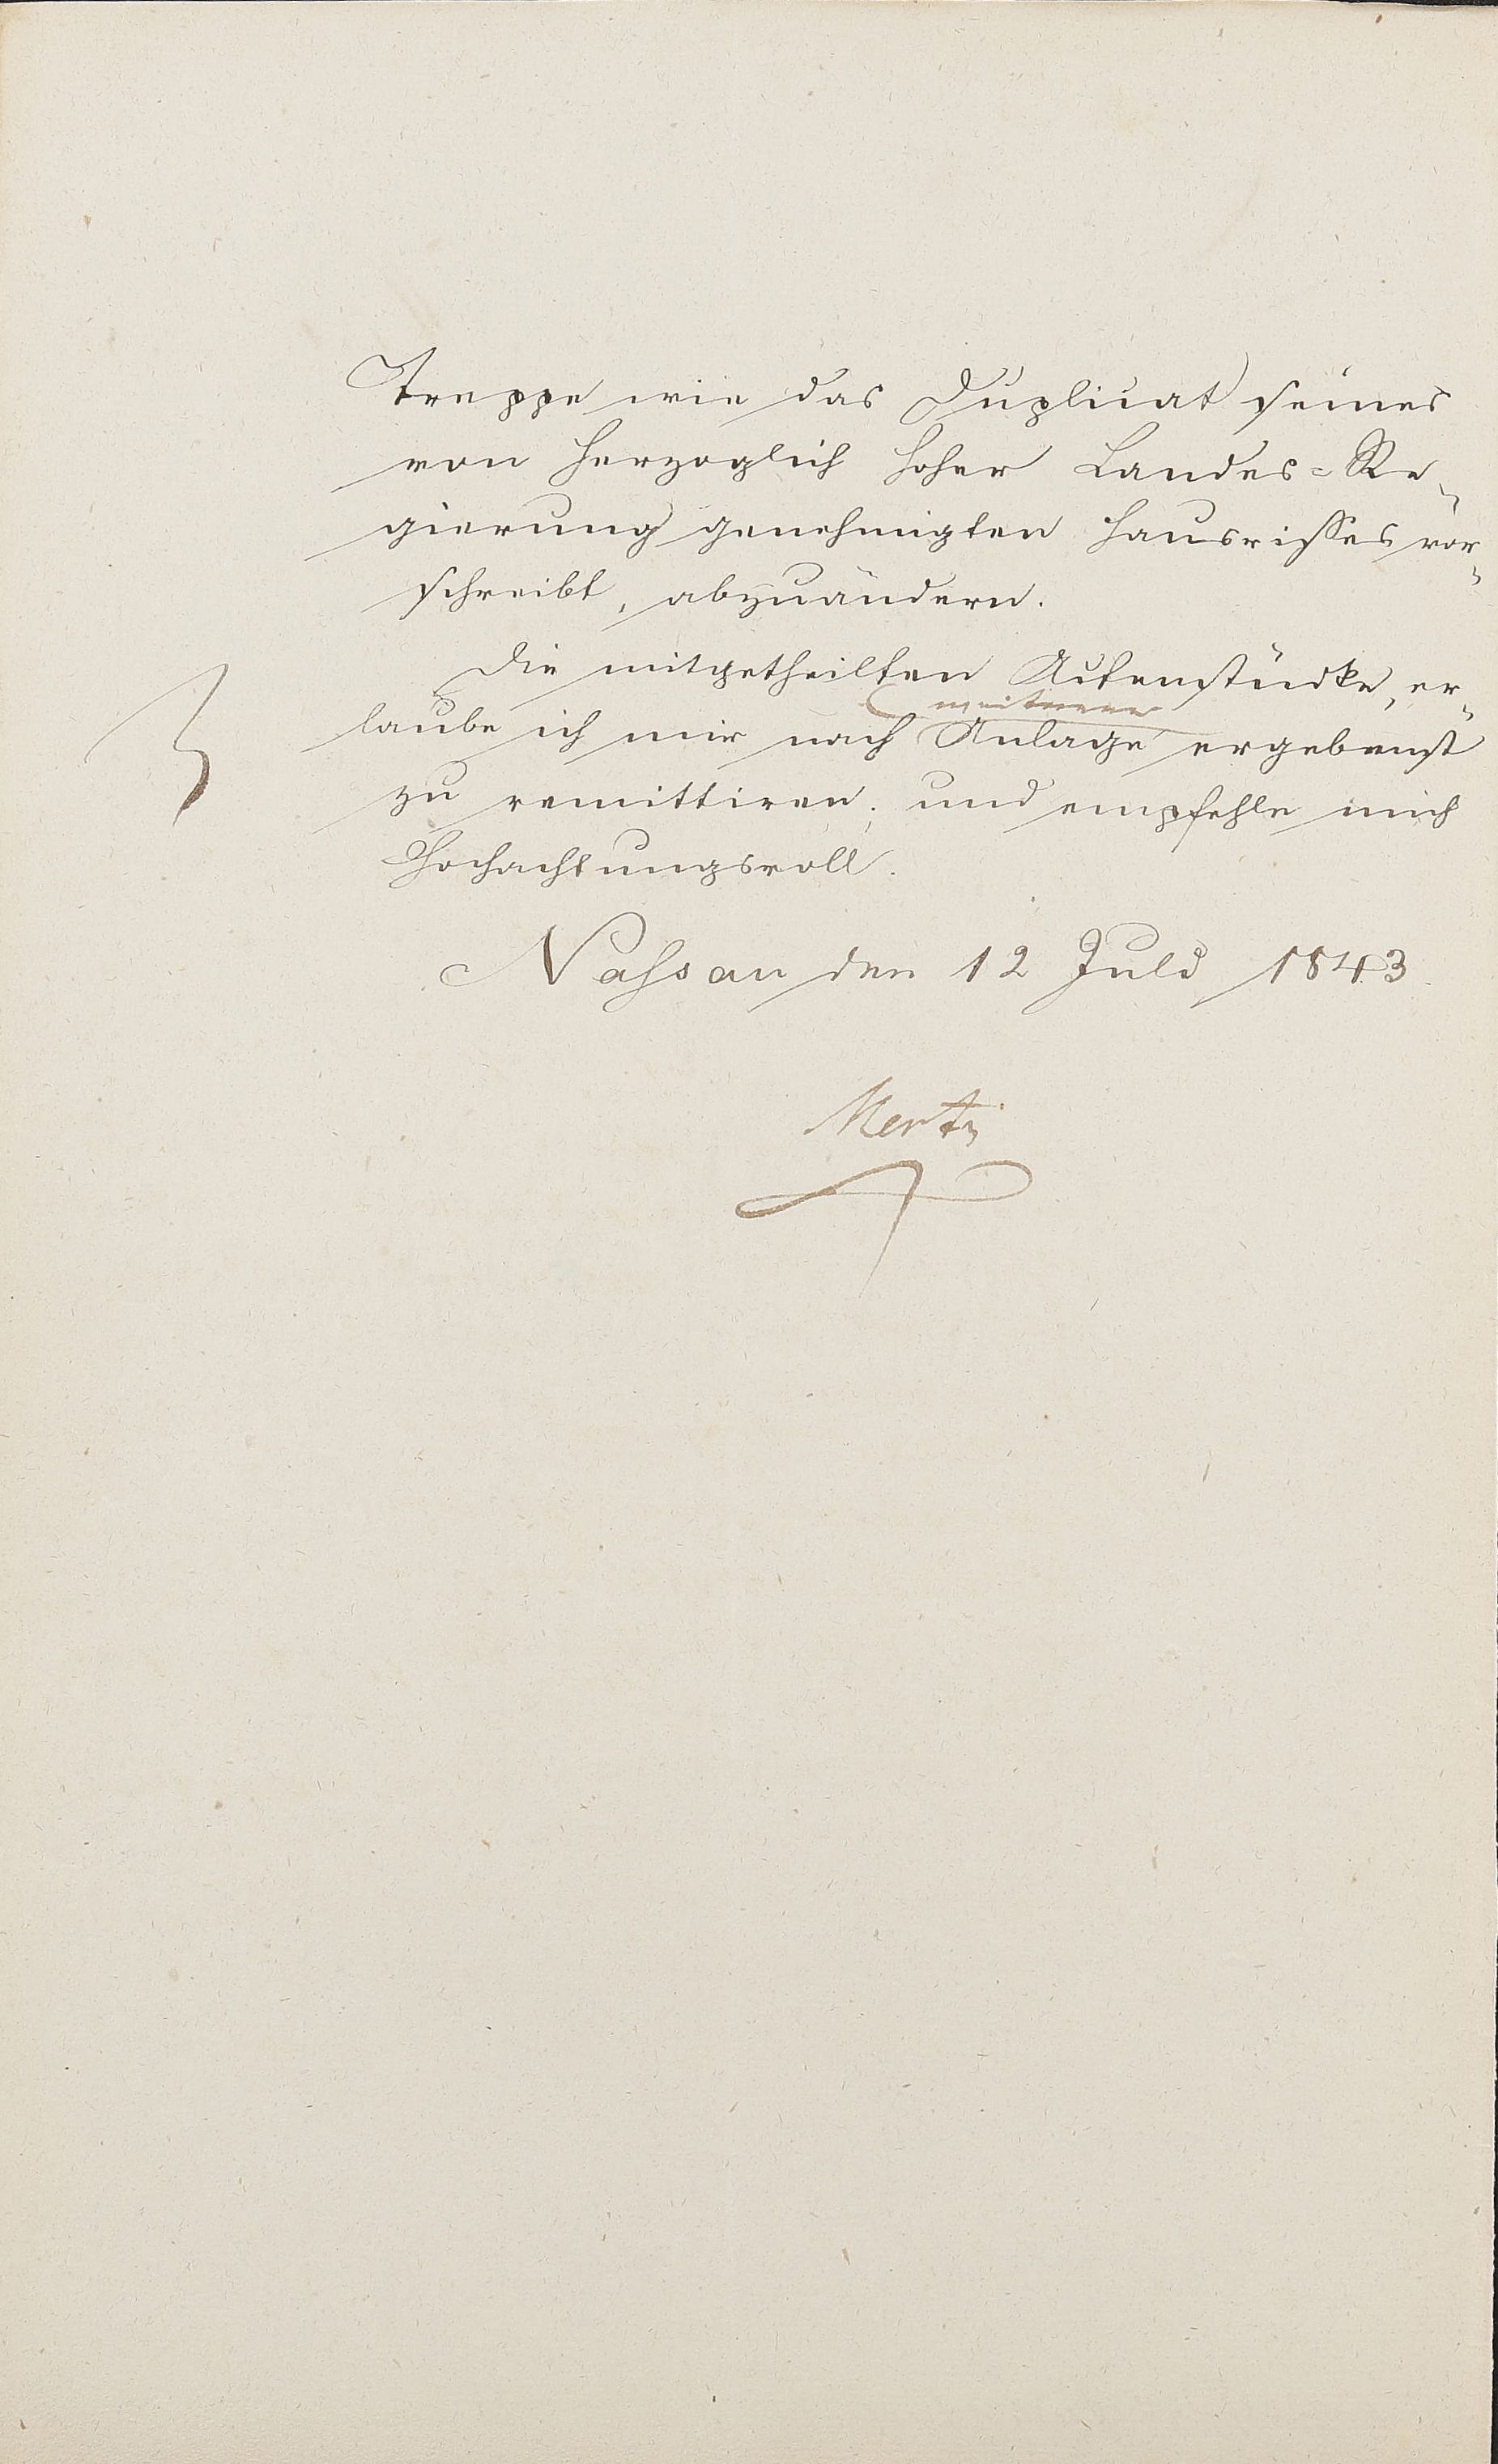 Treppe wie das Duplicat seines
von Herzoglich Hoher Landes=Re-
gierung genehmigten Hausrisses vor-
schreibt, abzuändern.
Die mitgetheilten Actenstücke, er-
laube ich mir nach Anlage ergebenst
zu remittiren; und empfehle mich
Hochachtungsvoll.
Nassau den 12 Juli 1843.
Mertz